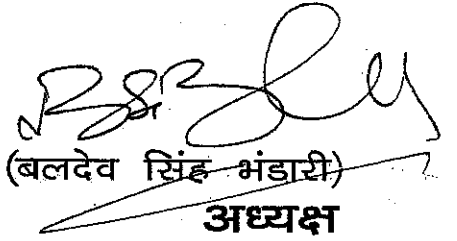 (बलदेव सिंह भंडारी)
अध्यक्ष